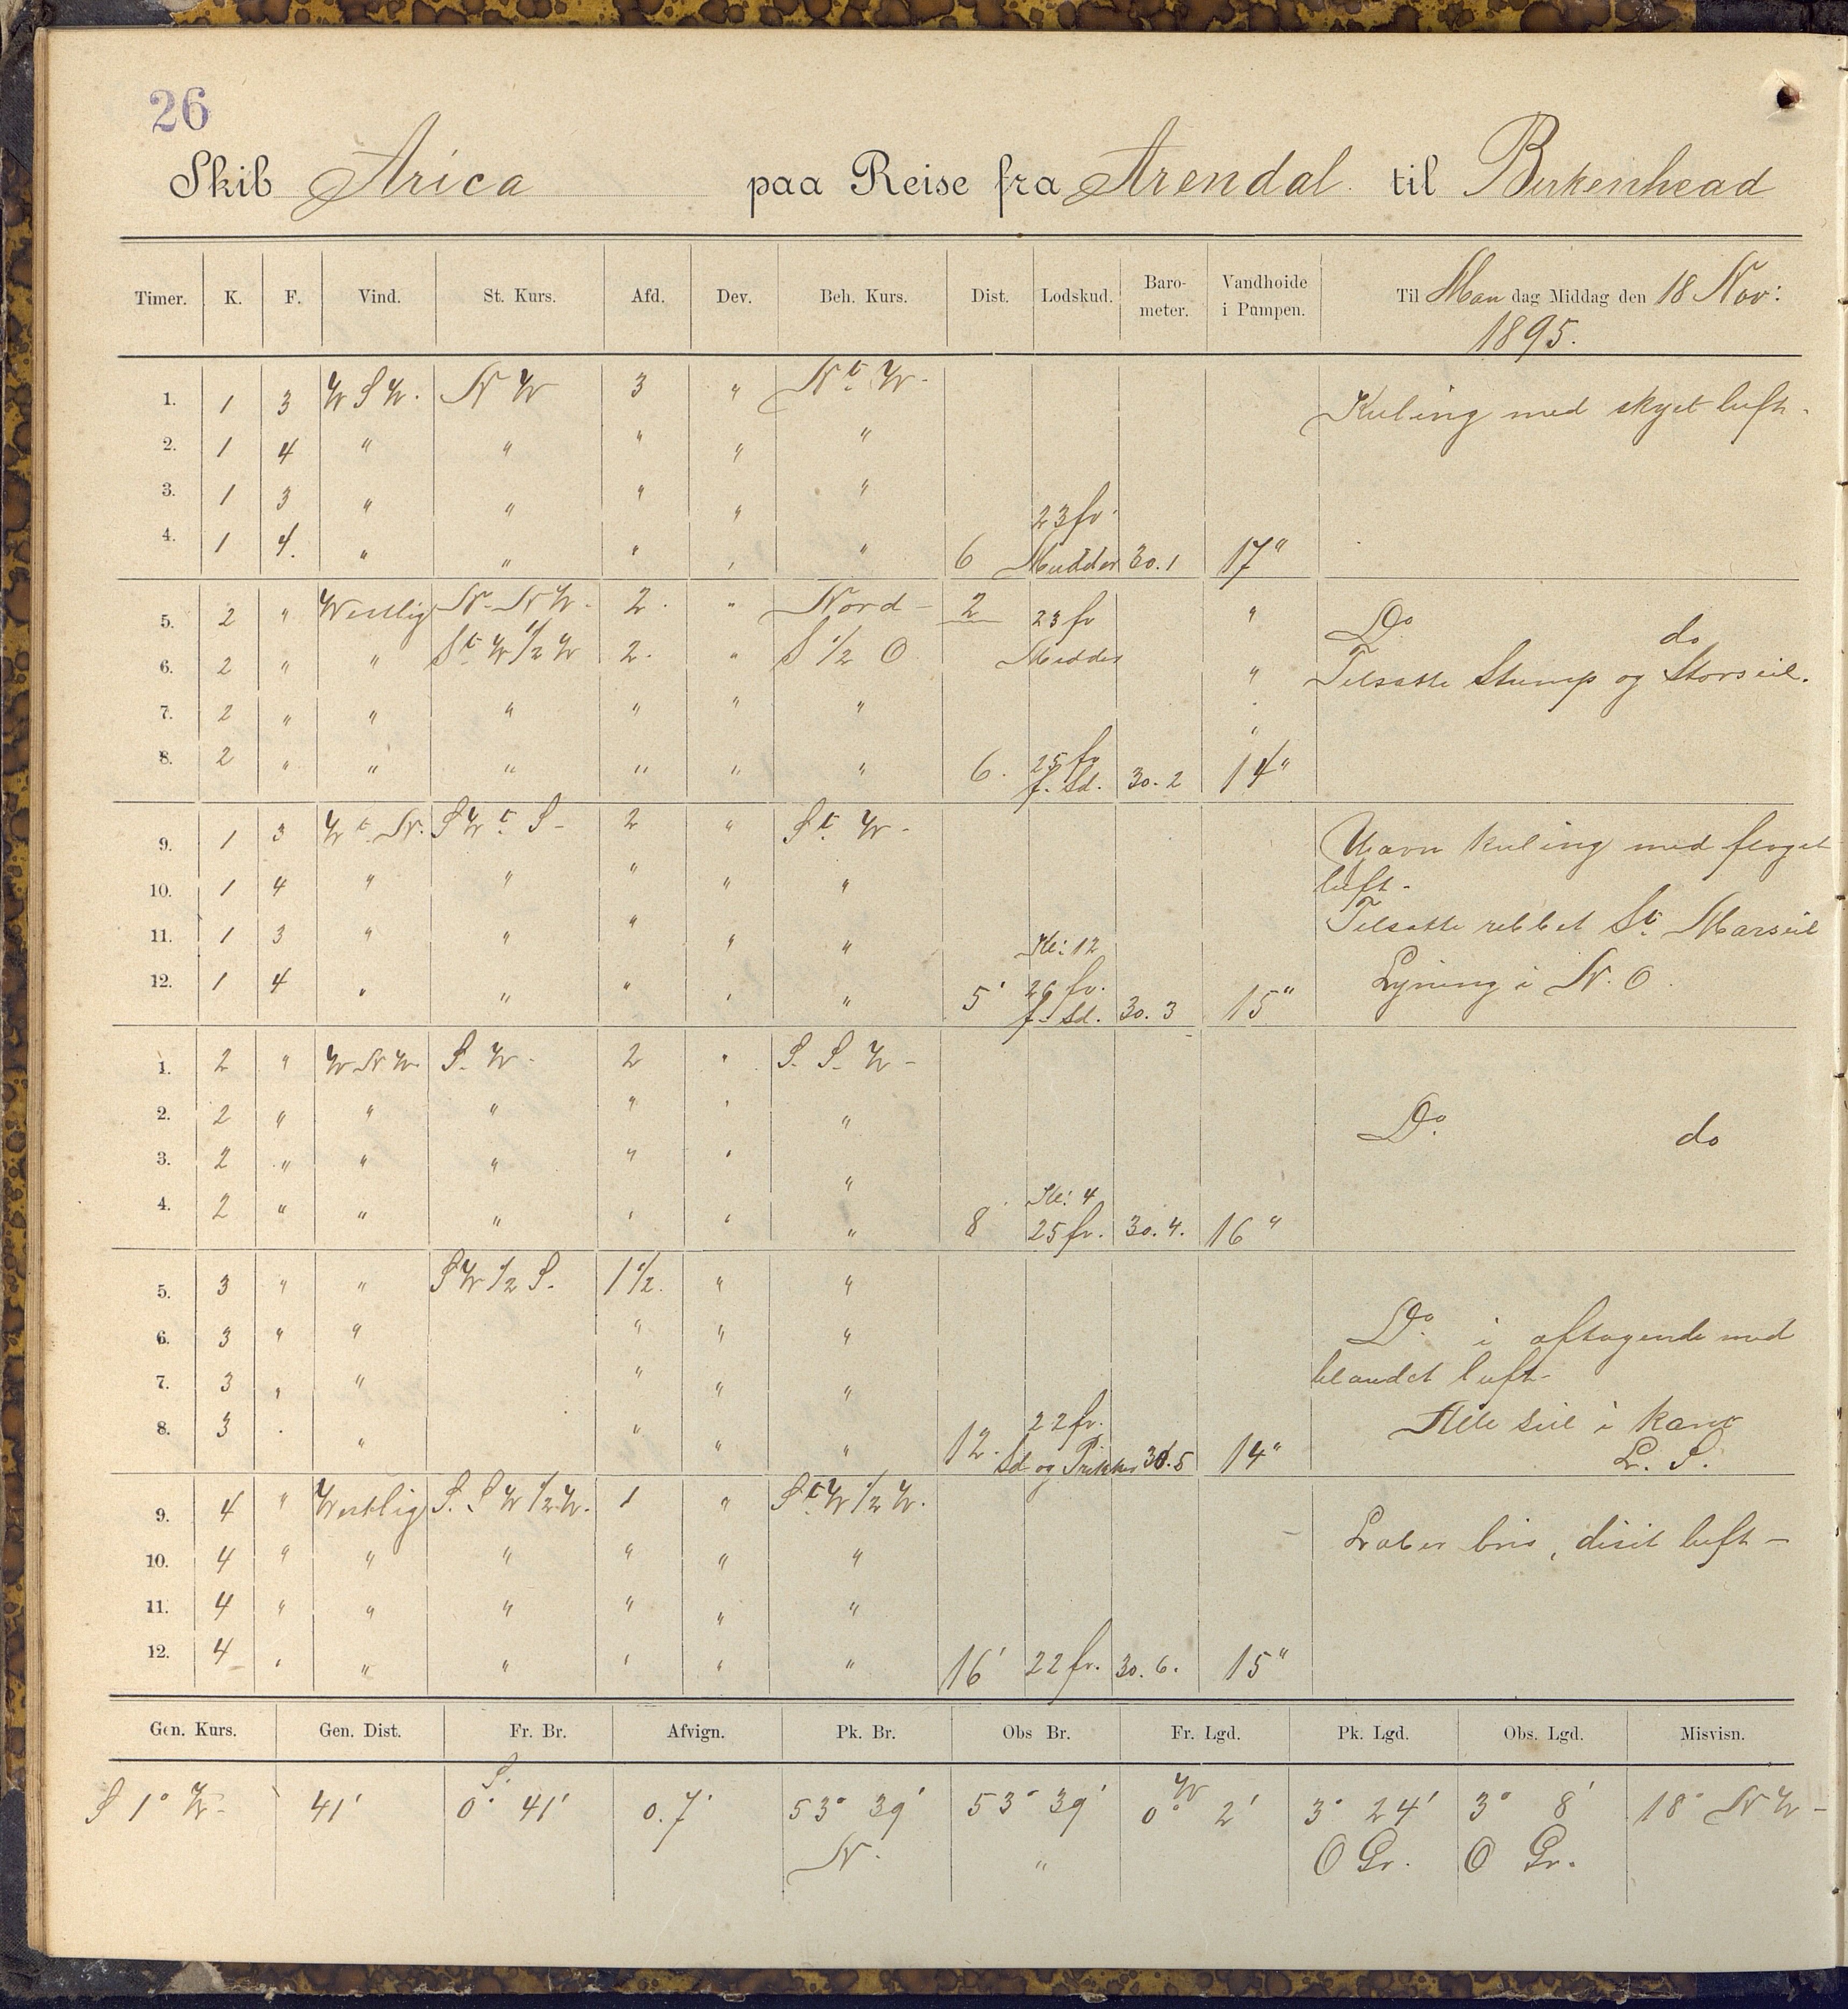 26
Skib Arica paa Reise fra Arendal til Birkenhead
Timer. K. F. Vind. St. Kurs. Afd. Dev. Beh. Kurs. Dist. Lodskud. Baro-meter. Vandhoide i Pumpen. Til Man dag Middag den 18 Nov: 1895.
1. 1 3 W S W. N W 3 " N t. W. Kuling med skyet luft.
2. 1 4 " " " " "
3. 1 3 " " " " " 23 fv.
4. 1 4. " " " " " 6 Mudder 30.1 17"
5. 2 " Westlig N. N W. 2. " Nord 2 23 fv " Do do
6. 2 " " S t W 1/2 W 2. " S 1/2 O Mudder " Tilsatte Stump og Storseil.
7. 2 " " " " " " "
8. 2 " " " " " " 6. 25 fv f. Sd. 30.2 14"
9. 1 3 W t. N. S W t. S. 2 " S t. W. kuling med
10. 1 4 " " " " " luft.
11. 1 3 " " " " " Kl: 12 Tilsatte rebbet St. Marseil
12. 1 4 " " " " " 5' 26 fv. f. Sd. 30.3 15" Lyning i N. O.
1. 2 " W N W. S. W. 2 " S. S. W.
2. 2 " " " " " " Do do
3. 2 " " " " " "
4. 2 " " " " " " 8 Kl: 4 25 fv. 30.4. 16"
5. 3 " " S W 1/2 S. 1 1/2. " "
6. 3 " " " " " Do i aftagende med
7. 3 " " " " " blandet luft.
8. 3 " " " " " 12. 22 fv. Sd og Prikker 30.5 14" Alle seil i kanv
L. S.
9. 4 " Westlig S. S W 1/2 W. 1 " S t. W 1/2 W. Laber bris, disit luft
10. 4 " " " " " "
11. 4 " " " " " "
12. 4 " " " " " " 16' 22 fv. 30.6. 15"
Gen. Kurs. Gen. Dist. Fr. Br. Afvign. Pk. Br. Obs Br. Fr. Lgd. Pk. Lgd. Obs. Lgd. Misvisn.
S. W
S 1° W. 41' 0° 41' 0.7' 53° 39' 53° 39' 0° 2' 3° 24' 3° 8' 18° N W
N. " O Gr. O Gr.